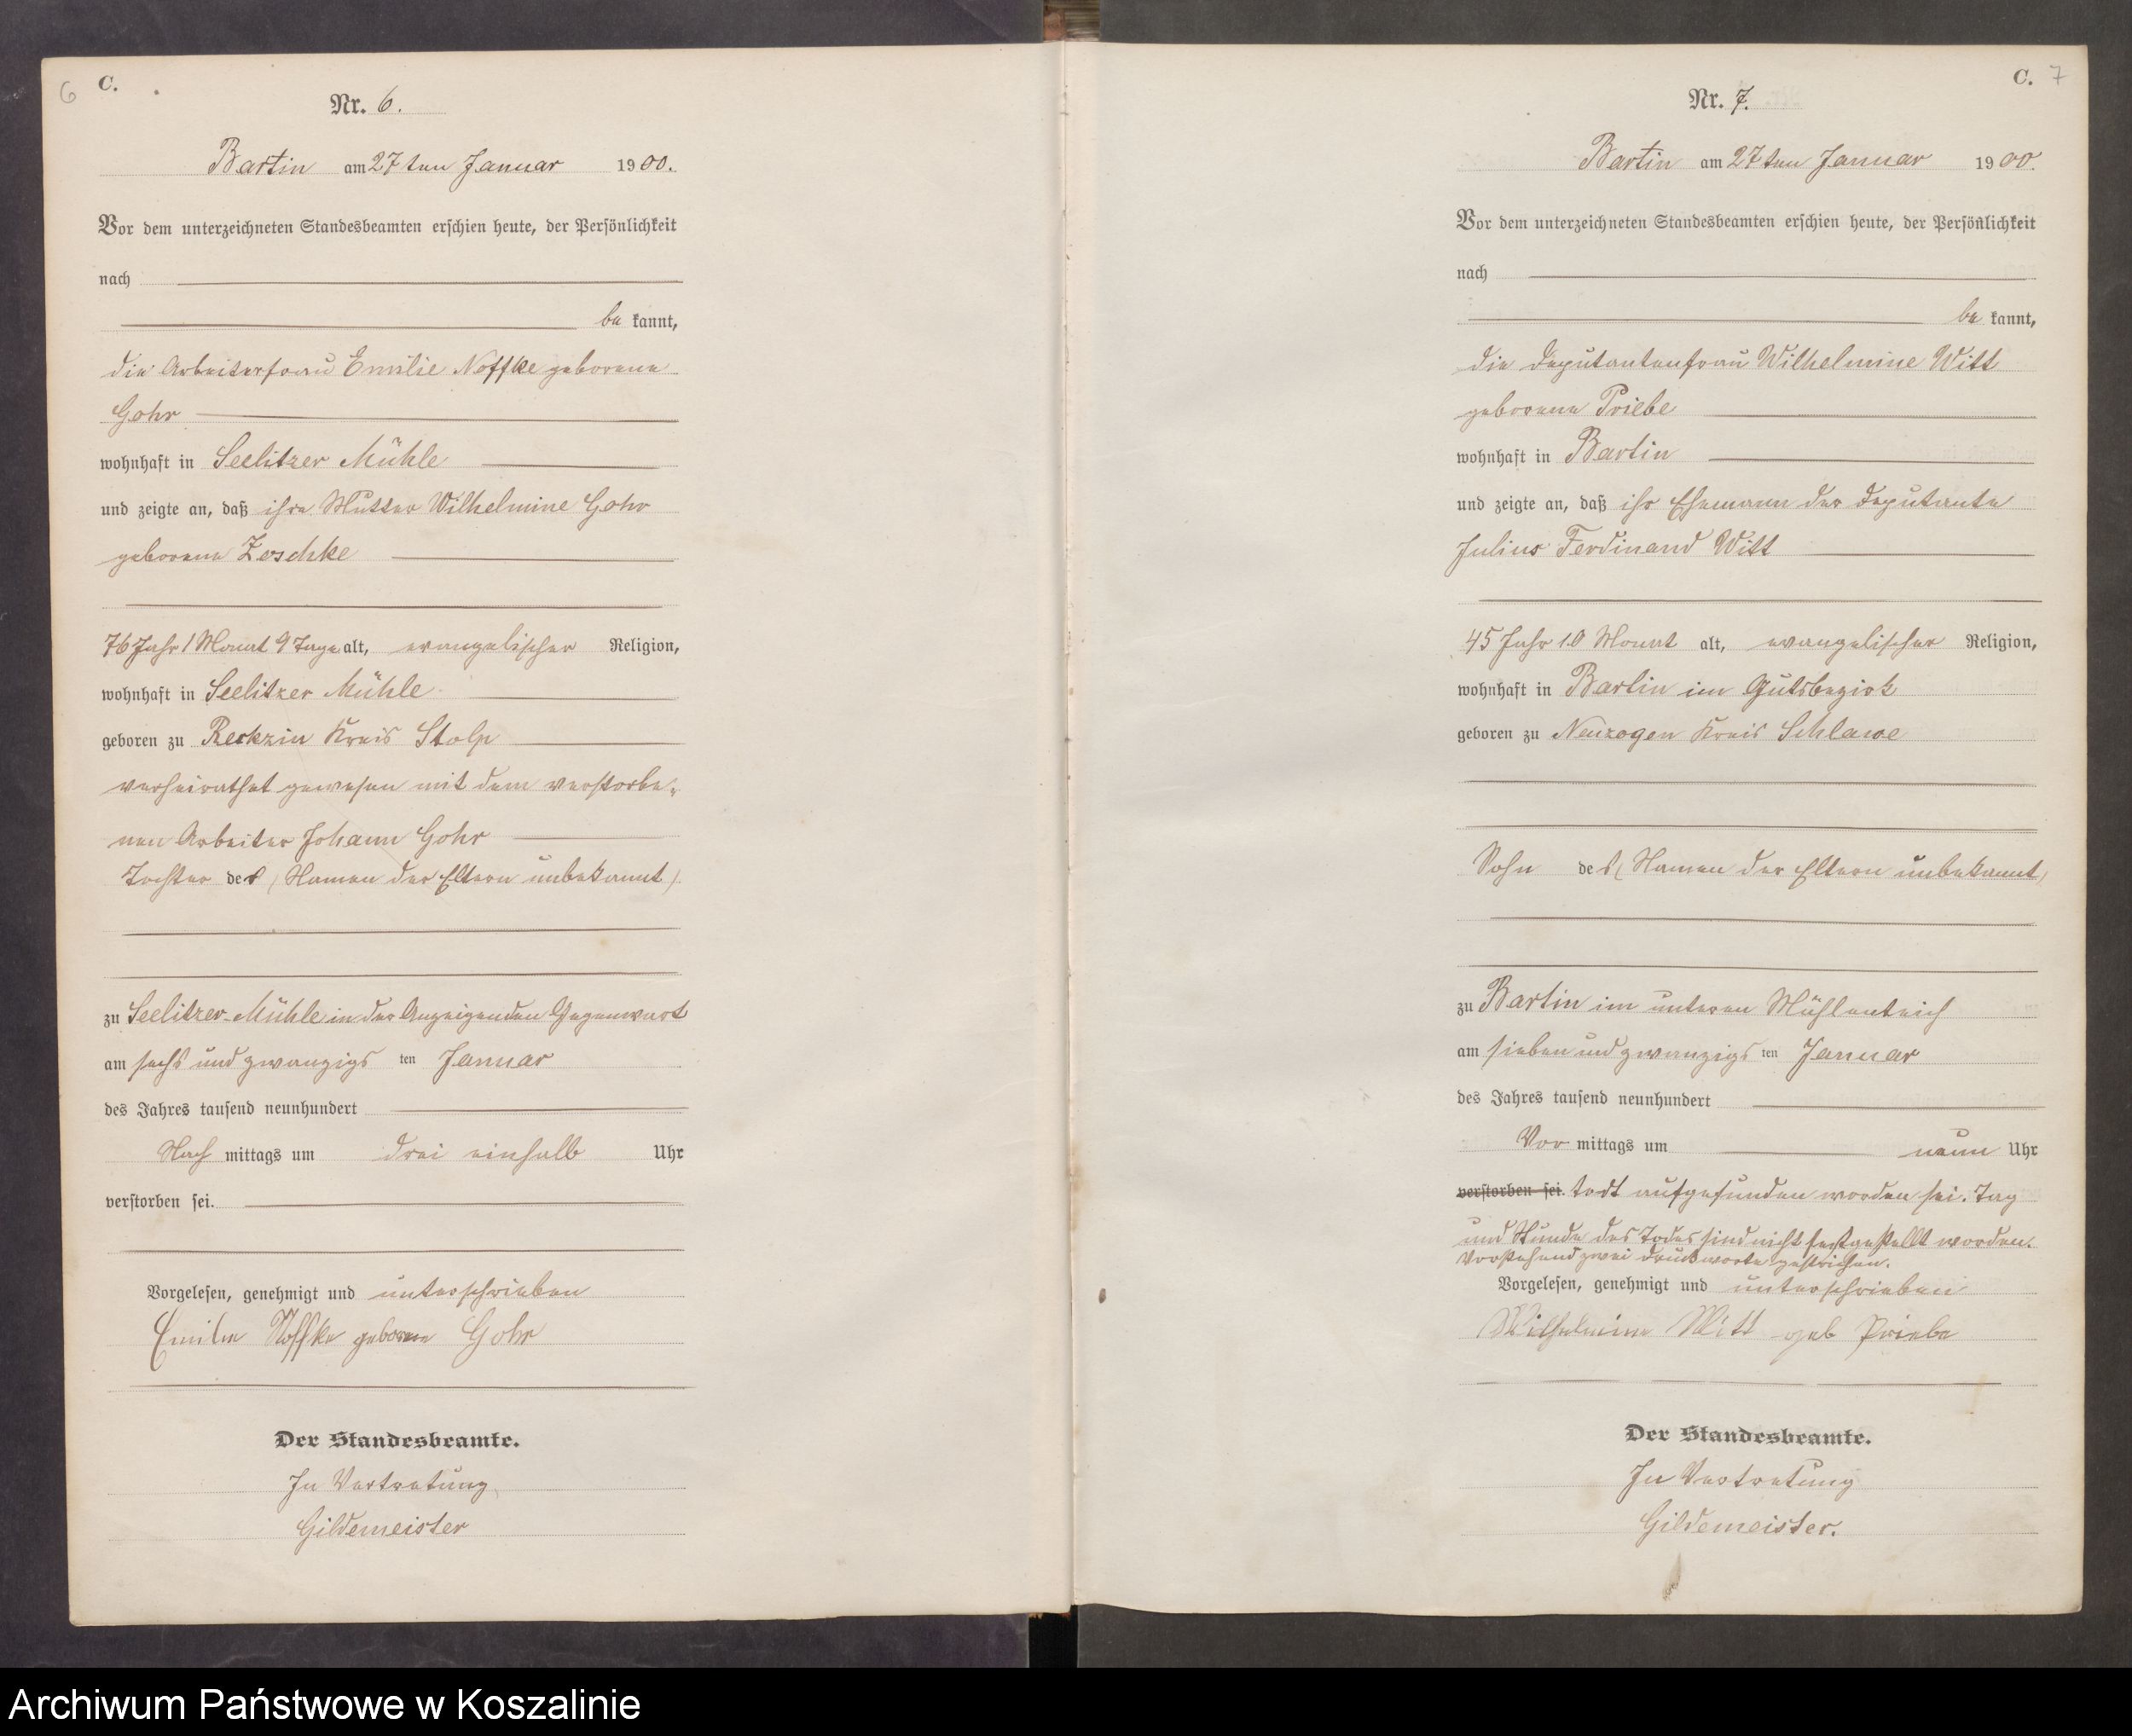 6 C.
Nr. 6.
Bartin am 27ten Januar 1900.
Vor dem unterzeichneten Standesbeamten erschien heute, der Persönlichkeit
nach
be kannt,
die Arbeiterfrau Emilie Noffke geborene
Gohr
wohnhaft in Seelitzer Mühle
und zeigte an, daß ihre Mutter Wilhelmine Gohr
geborene Zeschke
76 Jahr 1 Monat 9 Tage alt, evangelischer Religion,
wohnhaft in Seelitzer Mühle
geboren zu Reckzin Kreis Stolp
verheirathet gewesen mit dem verstorbe-
nen Arbeiter Johann Gohr
Tochter der (Namen der Eltern unbekannt)
zu Seelitzer-Mühle in der Anzeigenden Gegenwart
am sechs und zwanzigs ten Januar
des Jahres tausend neunhundert
Nach mittags um drei einhalb Uhr
verstorben sei.
Vorgelesen, genehmigt und unterschrieben
Emilie Noffke geborene Gohr
Der Standesbeamte.
In Vertretung
Gildemeister
C. 7
Nr. 7.
Bartin am 27ten Januar 1900.
Vor dem unterzeichneten Standesbeamten erschien heute, der Persönlichkeit
nach
be kannt,
die Deputantenfrau Wilhelmine Witt
geborene Priebe
wohnhaft in Bartin
und zeigte an, daß ihr Ehemann der Deputante
Julius Ferdinand Witt
45 Jahr 10 Monat alt, evangelischer Religion,
wohnhaft in Bartin im Gutsbezirk
geboren zu Neuzogen Kreis Schlawe
Sohn des (Namen der Eltern unbekannt)
zu Bartin im unteren Mühlenteich
am sieben und zwanzigs ten Januar
des Jahres tausend neunhundert
Vor mittags um neun Uhr
verstorben sei. todt aufgefunden worden sei. Tag
und Stunde des Todes sind nicht festgestellt worden.
Vorstehend zwei Druckworte gestrichen.
Vorgelesen, genehmigt und unterschrieben
Wilhelmine Witt geb Priebe
Der Standesbeamte.
In Vertretung
Gildemeister.
Archiwum Państwowe w Koszalinie